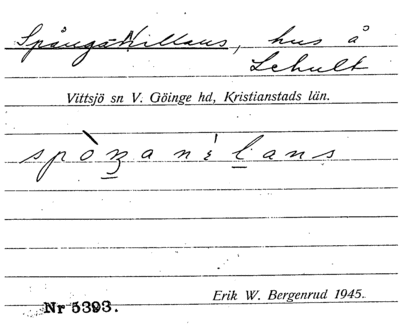 SpångaNillans, hus å
Lehult
Vittsjö sn V. Göinge hd, Kristianstads län.
Erik W. Bergenrud 1945.
Nr 5393.